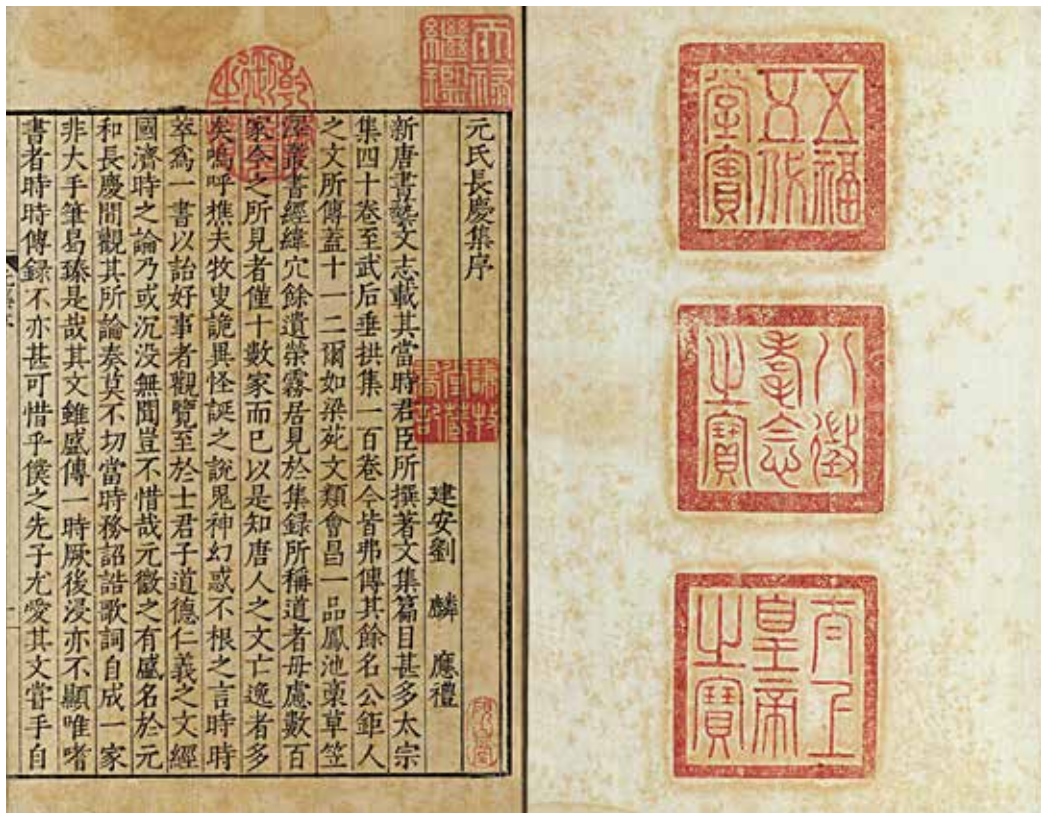 五福
五代
堂寶
八徵
耄念
之寶
太上
皇帝
之寶
天祿
繼鑑
乾隆
御覽
之寶
元氏長慶集序
謙牧
堂藏
書記
建安劉 麟 應禮
新唐書藝文志載其當時君臣所撰著文集篇目甚多太宗
集四十卷至武后垂拱集一百卷今皆弗傳其餘名公鉅人
之文所傳蓋十一二爾如梁苑文類會昌一品鳳池稾草笠
澤叢書經緯穴餘遺榮霧居見於集録所稱道者毋慮數百
家今之所見者僅十數家而已以是知唐人之文亡逸者多
矣嗚呼樵夫牧叟詭異怪誕之說鬼神幻惑不根之言時時
萃爲一書以詒好事者觀覽至於士君子道德仁義之文經
國濟時之論乃或沉没無聞豈不惜哉元微之有盛名於元
和長慶間觀其所論奏莫不切當時務詔誥歌詞自成一家
非大手筆曷臻是哉其文雖盛傳一時厥後浸亦不顯唯嗜
書者時時傳録不亦甚可惜乎僕之先子尤愛其文嘗手自